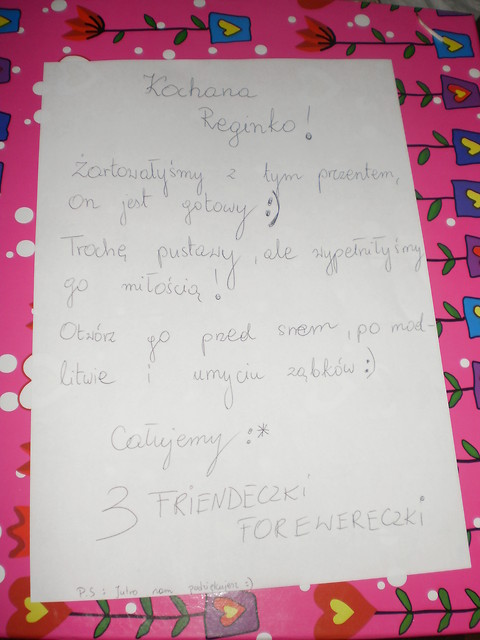 Kochana
Reginko!
Żartowałyśmy z tym prezentem,
on jest gotowy :)
Trochę pustawy, ale wypełniłyśmy
go miłością!
Otwórz go przed snem, po mod-
litwie i umyciu ząbków :)
Całujemy :*
3 FRIENDECZKI
FOREWERECZKI
P.S: Jutro nam podziękujesz :)